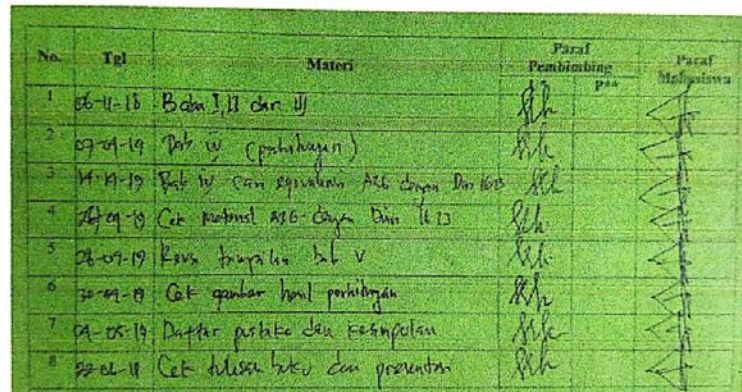 No. Tgl Materi Paraf Pembimbing Paraf Mahasiswa
1 06-11-18 Baba I, II dan III
2 07-09-19 Bab IV (perhitungan)
3 Bab IV cari equivalen A36 dengan Din 1613
4 Cek material A36 dengan Din 1613
5 26-09-19 Revisi bab V
6 30-09-19 Cek gambar hasil perhitungan
7 Daftar pustaka dan kesimpulan
8 Cek tulisan buku dan